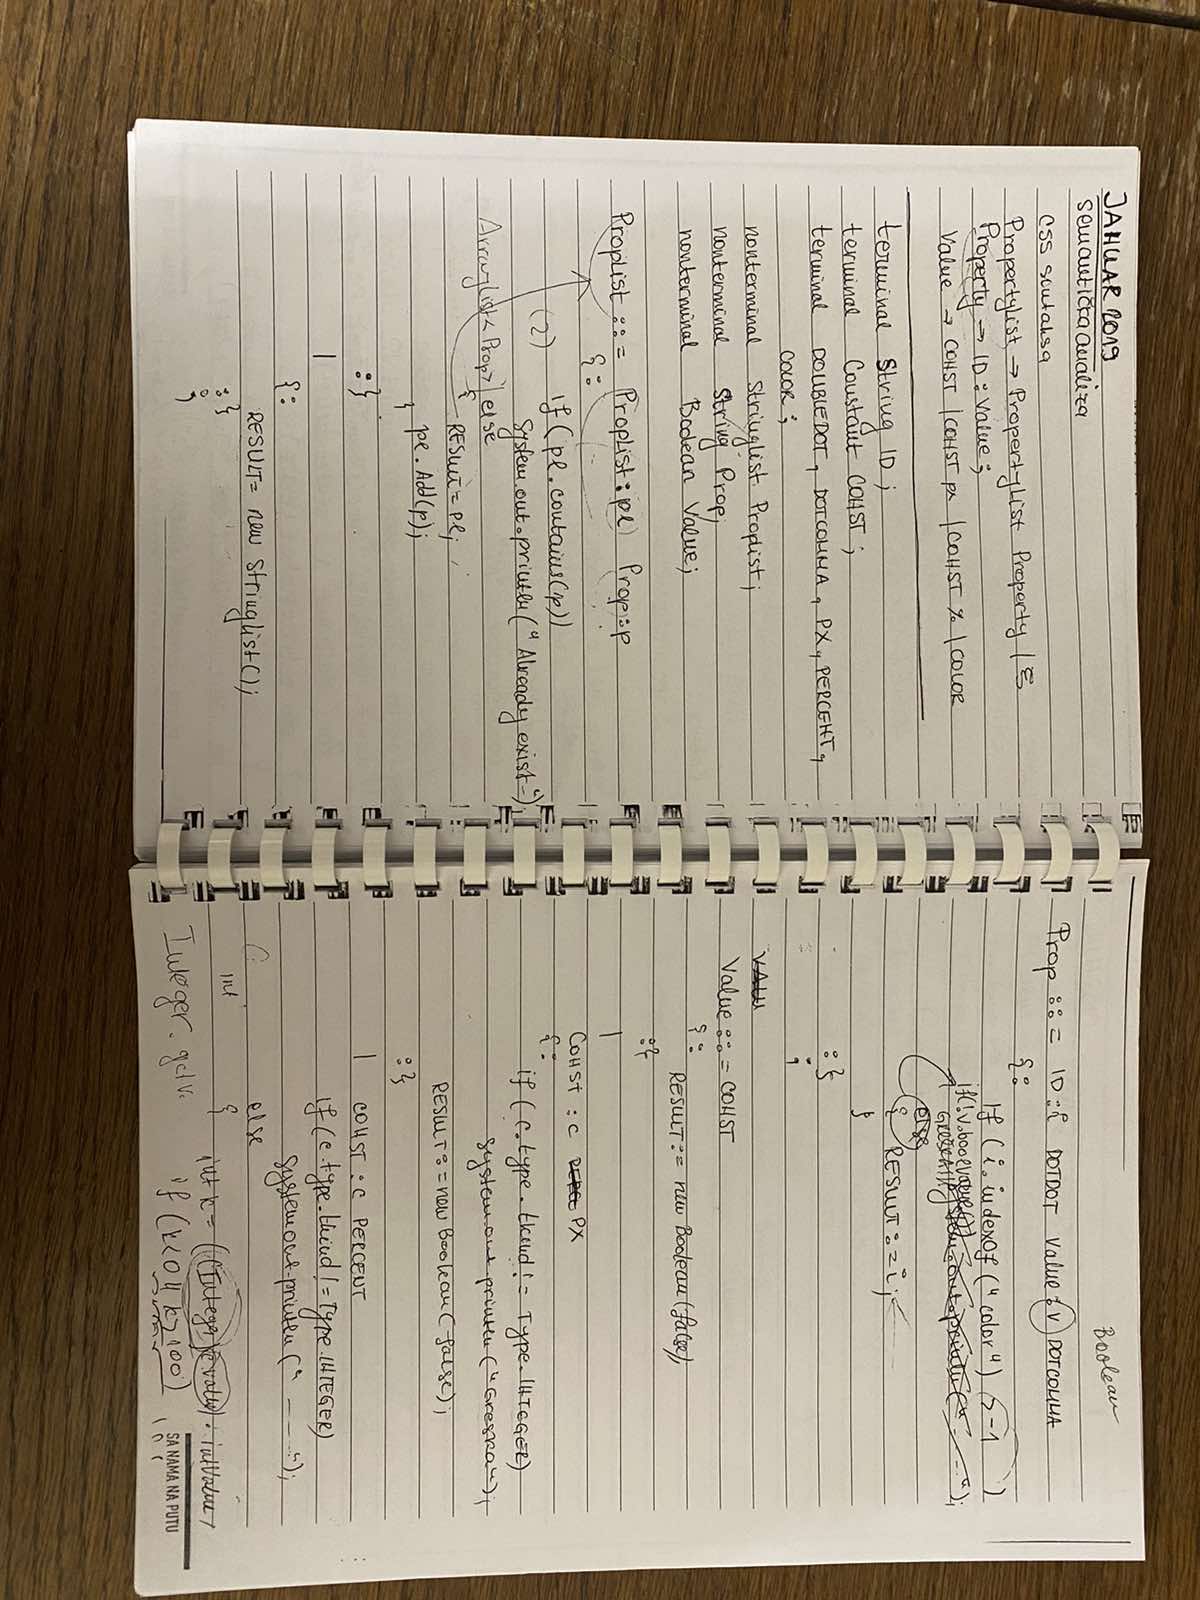 JAHUAR 2019
semantička analiza
CSS sintaksa
PropertyList → PropertyList Property | ε
Property → ID : Value ;
Value → COHST | COHST px | COHST % | COLOR
terminal String ID ;
terminal Constant COHST ;
terminal DOUBLEDOT, DOTCOHHA, PX, PERCEHT,
COLOR ;
nonterminal StringList Proplist ;
nonterminal String Prop ;
nonterminal Boolean Value ;
PropList ::= PropList : pl Prop : p
{:
(2) if (pl.contains(p))
System.out.println("Already exist-");
ArrayList<Prop> else
{ RESULT = pl ;
pl.Add(p);
}
:}
|
{:
RESULT = new StringList();
:}
;
Boolean
Prop ::= ID : i DOTDOT Value : v DOTCOHHA
{:
if (i.indexOf("color") > -1)
if(!v.boolValue())
else
{ RESULT := i ;
}
:}
;
VALU
Value ::= COHST
{:
RESULT := new Boolean(false);
:}
|
COHST : c PX
{:
if (c.type.tkind != Type.IHTEGER)
System.out.println("Greska");
RESULT := new Boolean(false);
:}
|
COHST : c PERCEHT
if (c.type.tkind != Type.IHTEGER)
System.out.println("---");
else
int
{ int k = ((Integer)c.value).intValue
Integer.getv. if (k<0 || k>100)
SA NAMA NA PUTU